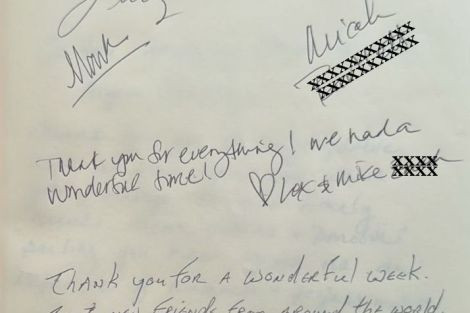 Mark
Micah
Thank you for everything! We had a
wonderful time!
♡ Lex & Mike
Thank you for a wonderful week.
friends from around the world.